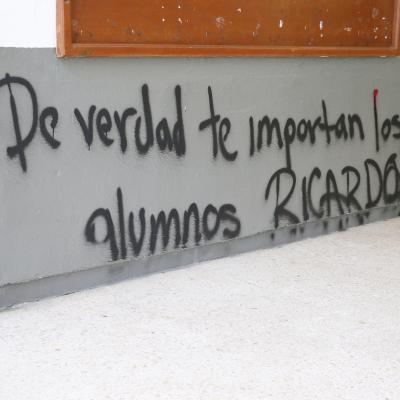 De verdad te importan los
alumnos RICARDO